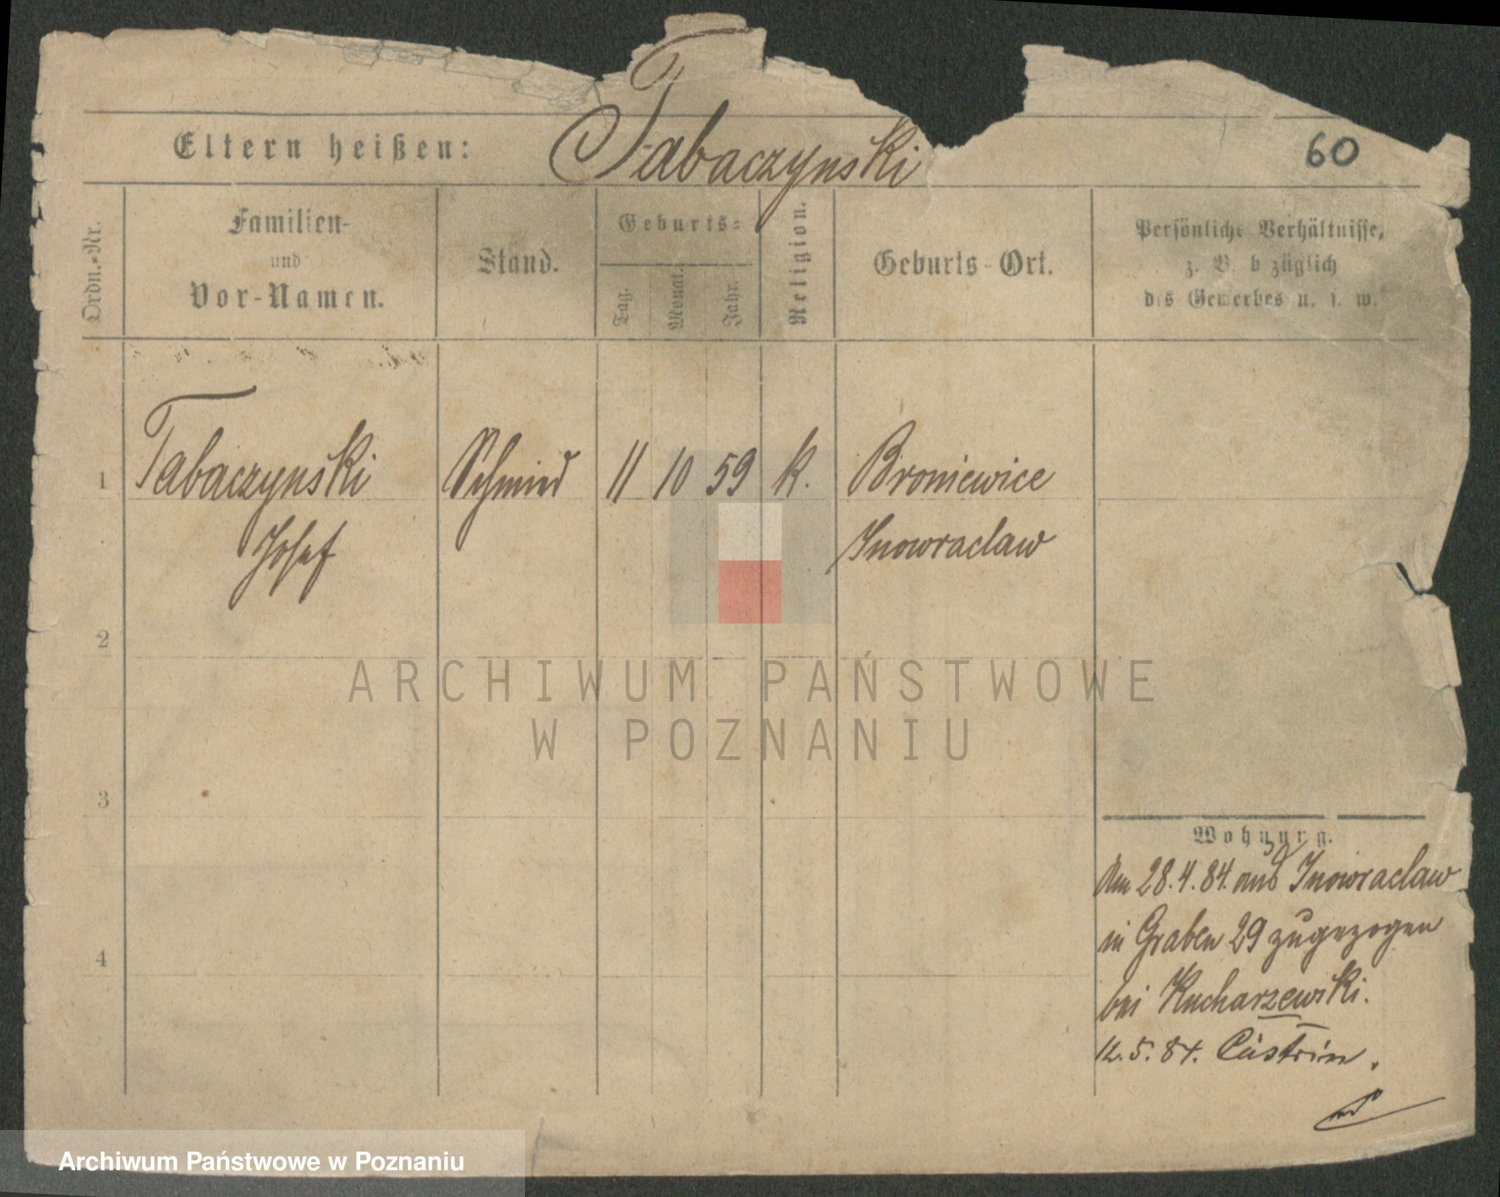 60
Eltern heißen: Tabaczynski
Ordn.-Nr.
Familien-
und
Vor-Namen.
Stand.
Geburts=
Tag.
Monat.
Jahr.
Religion.
Geburts-Ort.
Persönliche Verhältnisse,
z. B. bezüglich
des Gewerbes u. s. w.
1 Tabaczynski Schmied 11 10 59 k. Broniewice
Josef Inowraclaw
2
ARCHIWUM PAŃSTWOWE
W POZNANIU
3
Wohnung.
Am 28.4.84. aus Inowraclaw
in Graben 29 zugezogen
4
bei Kucharzewski.
12.5.84. Cüstrin.
Archiwum Państwowe w Poznaniu